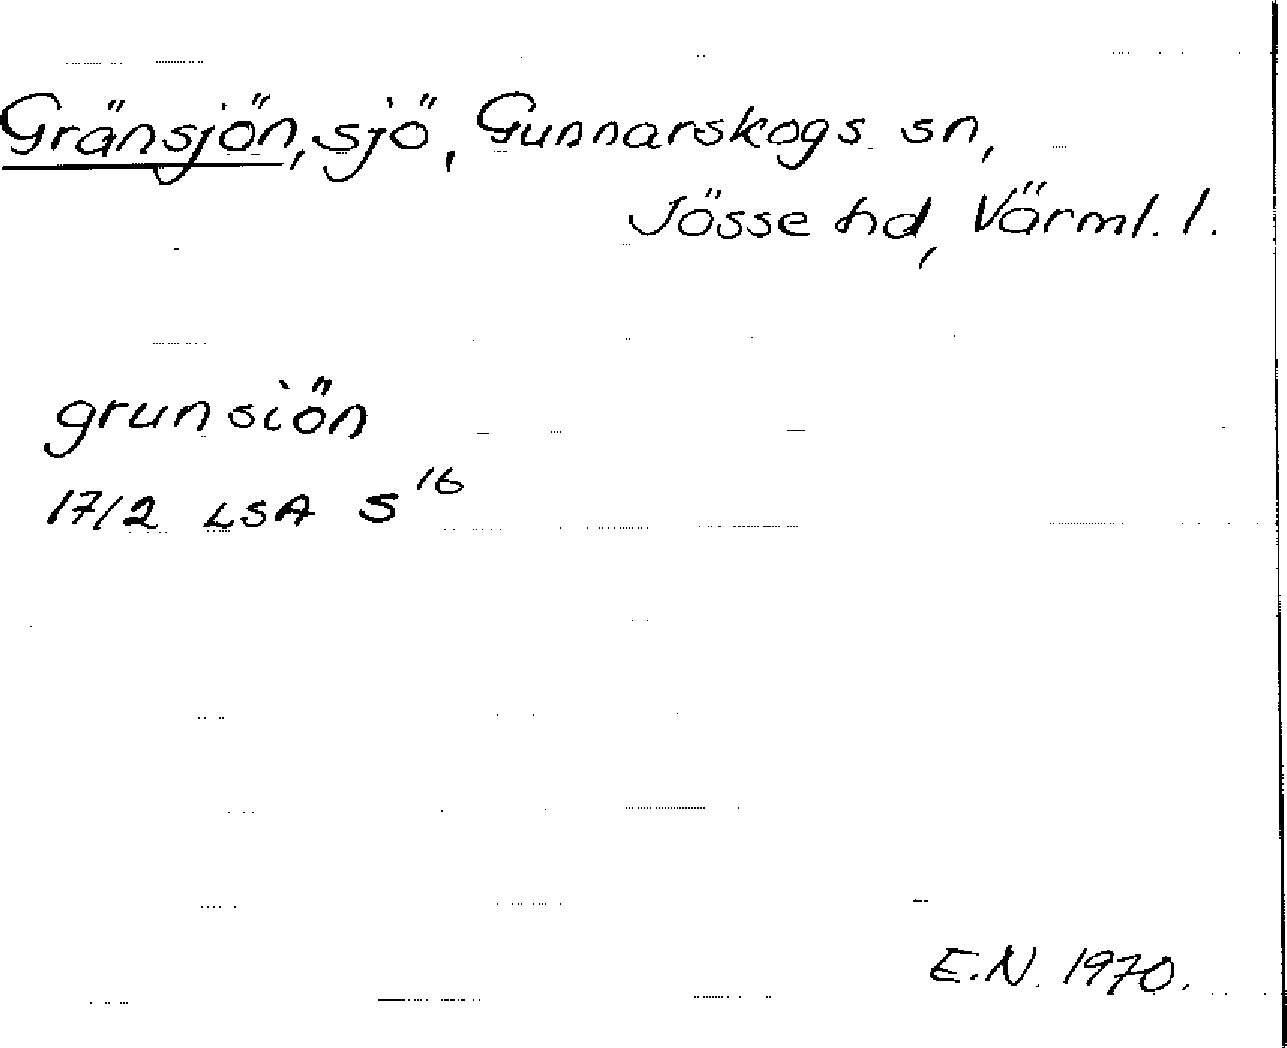 Gränsjön, sjö, Gunnarskogs sn,
Jösse hd, Värml. l.
grunsiön
1712 LSA S 16
E.N. 1970.